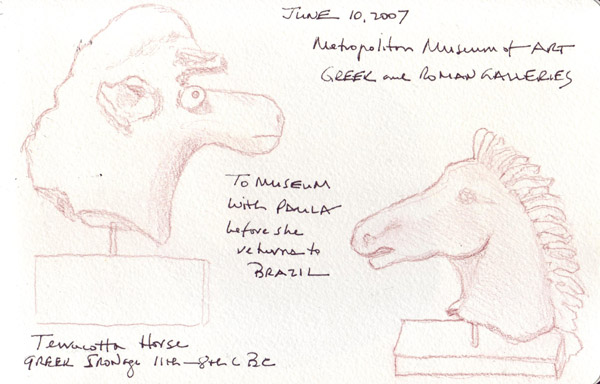 JUNE 10, 2007
Metropolitan Museum of ART
GREEK and ROMAN GALLERIES
TO MUSEUM
with PAULA
before she
returns to
BRAZIL
Terracotta Horse
GREEK IRONage 11th-8th C BC